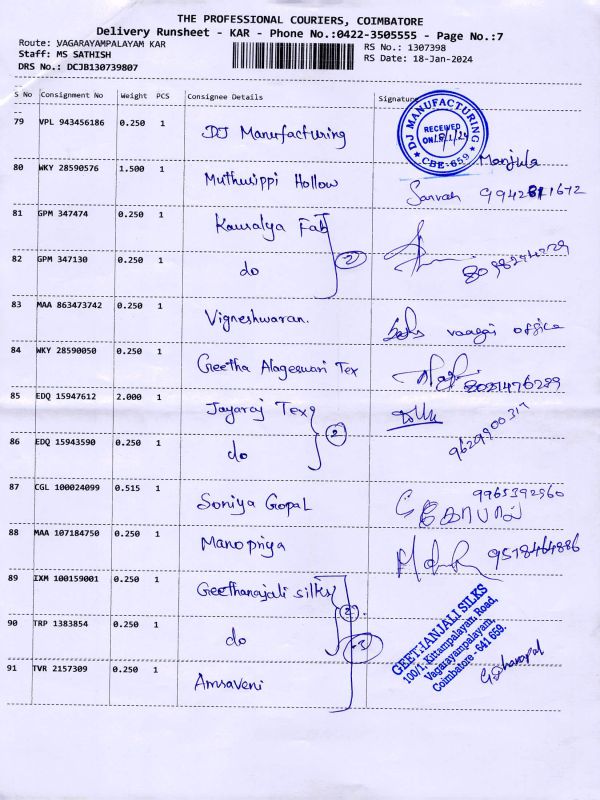 THE PROFESSIONAL COURIERS, COIMBATORE
Delivery Runsheet - KAR - Phone No.:0422-3505555 - Page No.:7
Route: VAGARAYAMPALAYAM KAR
RS No.: 1307398
Staff: MS SATHISH
RS Date: 18-Jan-2024
DRS No.: DCJB130739807
S No Consignment No Weight PCS Consignee Details Signature
79 VPL 943456186 0.250 1 DJ Manufacturing
DJ MANUFACTURING
RECEIVED
ON 18/1/24
CBE-659
Manjula
80 WKY 28590576 1.500 1 Muthurippi Hollow Sarvan
81 GPM 347474 0.250 1 Kausalya Fab
82 GPM 347130 0.250 1 do 2
83 MAA 863473742 0.250 1 Vigneshwaran. vaagai office
84 WKY 28590050 0.250 1 Geetha Alageswari Tex
85 EDQ 15947612 2.000 1 Jayaraj Tex
86 EDQ 15943590 0.250 1 do 2
87 CGL 100024099 0.515 1 Soniya Gopal 9965392560
88 MAA 107184750 0.250 1 Manopriya 9518464886
89 IXM 100159001 0.250 1 Geethanajali silks
90 TRP 1383854 0.250 1 do 2 3
GEETHANJALI SILKS
100/1, Kittampalayam Road,
Vagarayampalayam,
Coimbatore - 641 659.
91 TVR 2157309 0.250 1 Amsaveni